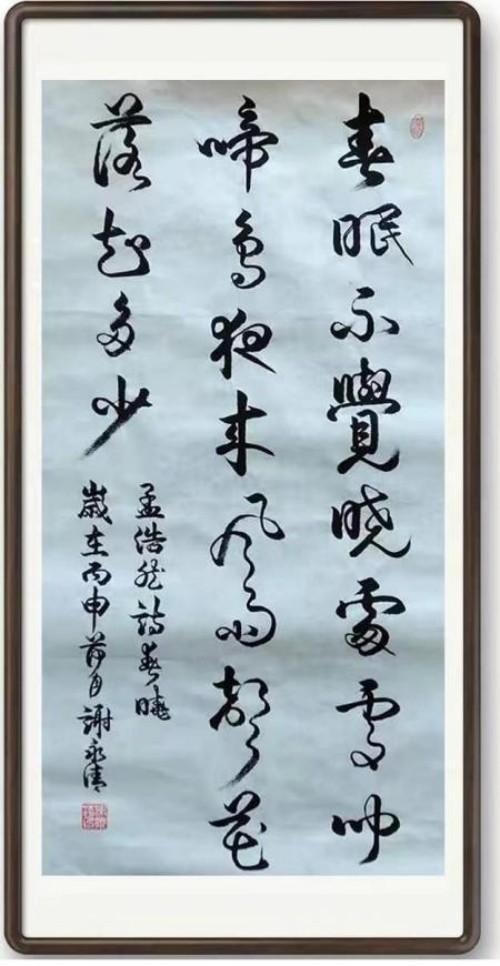 春眠不覺晓處處聞
啼鳥夜来風雨聲花
落知多少
孟浩然詩春曉
歲在丙申 月謝永清